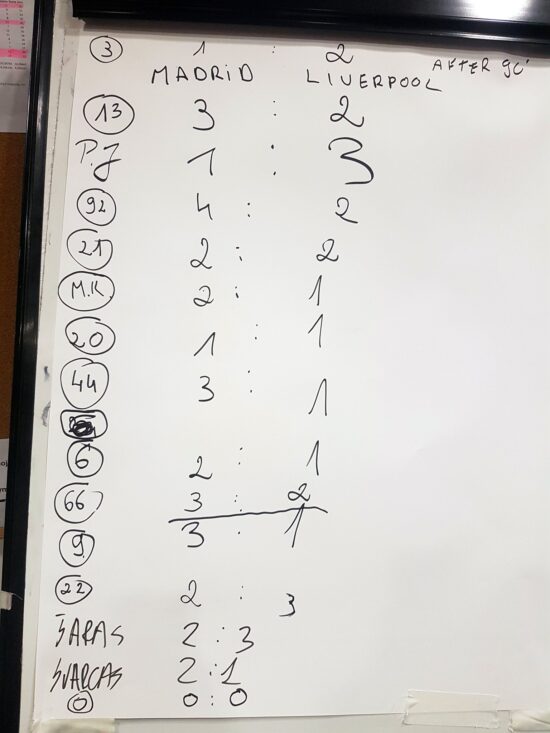 3 1 : 2
MADRID LIVERPOOL AFTER 90'
13 3 : 2
P.J 1 : 3
92 4 : 2
21 2 : 2
M.K. 2 : 1
20 1 : 1
44 3 : 1
6 2 : 1
66 3 : 2
9 3 : 1
22 2 : 3
ŠARAS 2 : 3
SVARCAS 2 : 1
0 0 : 0